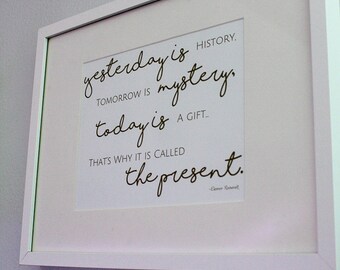 yesterday is HISTORY.
TOMORROW IS mystery,
today is A GIFT..
THAT'S WHY IT IS CALLED
the present.